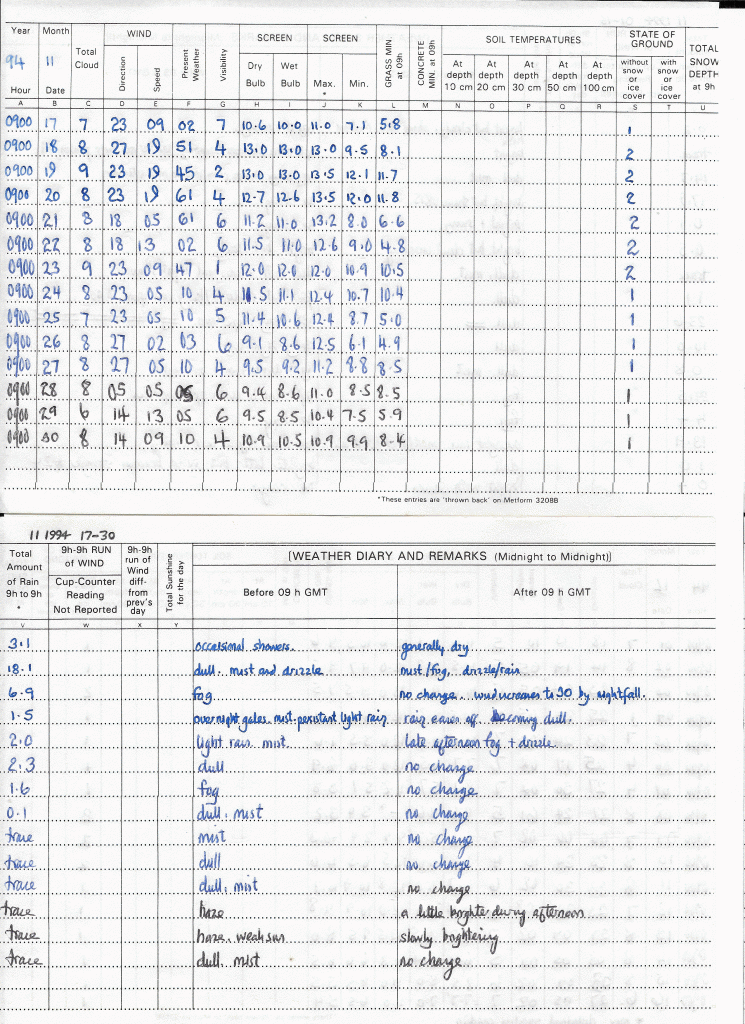 Year Month Total Cloud WIND Present Weather Visibility SCREEN SCREEN GRASS MIN at 09h CONCRETE MIN. at 09h SOIL TEMPERATURES STATE OF GROUND TOTAL SNOW DEPTH at 9h
94 11 Direction Speed Dry Bulb Wet Bulb Max. * Min. At depth 10 cm At depth 20 cm At depth 30 cm At depth 50 cm At depth 100 cm without snow or ice cover with snow or ice cover
Hour Date
A B C D E F G H I J K L M N O P Q R S T U
0900 17 7 23 09 02 7 10.6 10.0 11.0 7.1 5.8 1
0900 18 8 27 19 51 4 13.0 13.0 13.0 9.5 8.1 2
0900 19 9 23 19 45 2 13.0 13.0 13.5 12.1 11.7 2
0900 20 8 23 19 61 4 12.7 12.6 13.5 12.0 11.8 2
0900 21 8 18 05 61 6 11.2 11.0 13.2 8.0 6.6 2
0900 22 8 18 13 02 6 11.5 11.0 12.6 9.0 4.8 2
0900 23 9 23 09 47 1 12.0 12.0 12.0 10.9 10.5 2
0900 24 8 23 05 10 4 11.5 11.1 12.4 10.7 10.4 1
0900 25 7 23 05 10 5 11.4 10.6 12.4 8.7 5.0 1
0900 26 8 27 02 03 6 9.1 8.6 12.5 6.1 4.9 1
0900 27 8 27 05 10 4 9.5 9.2 11.2 8.8 8.5 1
0900 28 8 05 05 05 6 9.4 8.6 11.0 8.5 8.5 1
0900 29 6 14 13 05 6 9.5 8.5 10.4 7.5 5.9 1
0900 30 8 14 09 10 4 10.9 10.5 10.9 9.9 8.4 1
*These entries are 'thrown back' on Metform 3208B
11 1994 17-30
Total Amount of Rain 9h to 9h * 9h-9h RUN of WIND Cup-Counter Reading Not Reported 9h-9h run of Wind diff- from prev's day Total Sunshine for the day [WEATHER DIARY AND REMARKS (Midnight to Midnight)]
Before 09 h GMT After 09 h GMT
V W X Y
3.1 occasional showers. generally dry
18.1 dull. mist and drizzle mist/fog. drizzle/rain
6.9 fog no change. wind increases to 30 by nightfall.
1.5 overnight gales. mist. persistant light rain rain eases off. becoming dull.
2.0 light rain mist. late afternoon fog + drizzle
2.3 dull no change
1.6 fog no change
0.1 dull. mist no change
trace mist no change
trace dull no change
trace dull. mist no change
trace haze a little brighter during afternoon
trace haze. weak sun slowly brightening
trace dull. mist no change